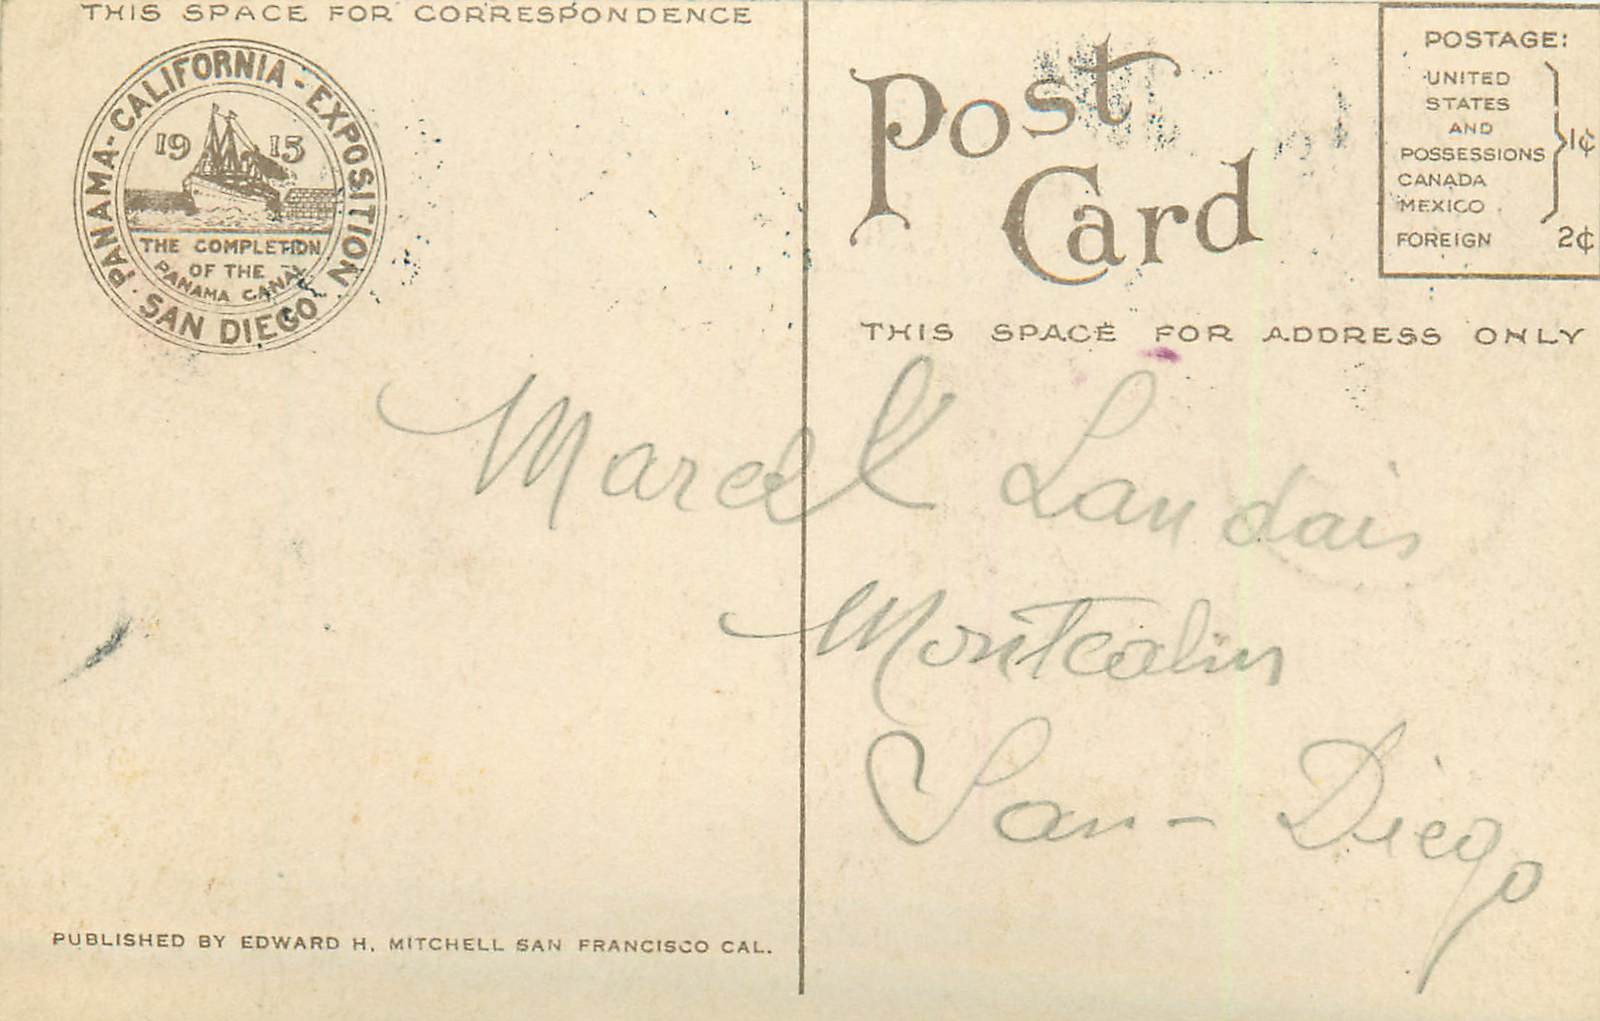 THIS SPACE FOR CORRESPONDENCE
PANAMA-CALIFORNIA-EXPOSITION
SAN DIEGO
1915
THE COMPLETION
OF THE
PANAMA CANAL
Post
Card
POSTAGE:
UNITED
STATES
AND
POSSESSIONS
CANADA
MEXICO
1¢
FOREIGN 2¢
THIS SPACE FOR ADDRESS ONLY
Marcel Landais
Montcalm
San-Diego
PUBLISHED BY EDWARD H. MITCHELL SAN FRANCISCO CAL.